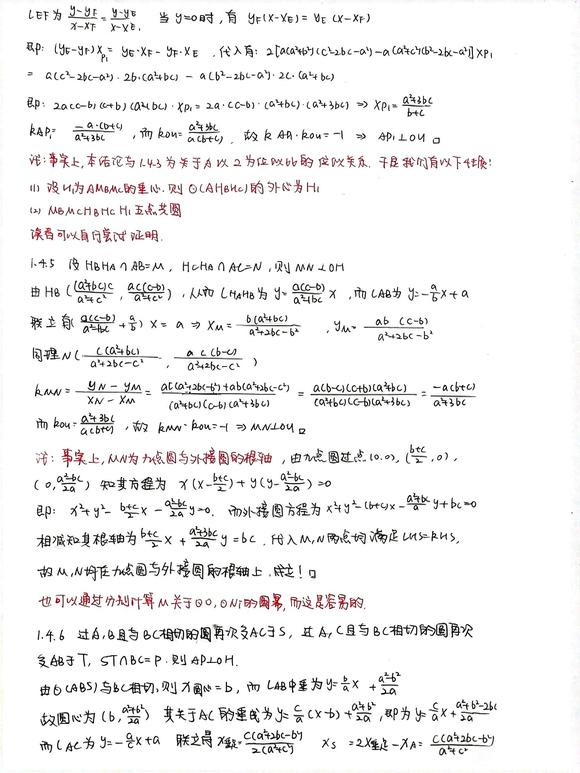 LEF为 (y-yF)/(x-xF) = (y-yE)/(x-xE). 当y=0时,有 yF(x-xE) = yE(x-xF)
即: (yE-yF)xP₁ = yE·xF - yF·xE. 代入有: 2[a(a²+b²)(c²-2bc-a²)-a(a²+c²)(b²-2bc-a²)]xP₁
= a(c²-2bc-a²)·2b·(a²+bc) - a(b²-2bc-a²)·2c·(a²+bc)
即: 2a(c-b)(c+b)(a²+bc)·xP₁ = 2a·(c-b)·(a²+bc)·(a²+3bc) ⇒ xP₁ = (a²+3bc)/(b+c)
kAP₁ = -a·(b+c)/(a²+3bc), 而 kOH = (a²+3bc)/(a(b+c)). 故 kAP₁·kOH = -1 ⇒ AP₁⊥OH □
注:事实上,本结论与1.4.3为关于A以2为位似比的位似关系. 于是我们有以下性质!
(1) 设H₁为AMBMC的垂心. 则⊙(AHBHC)的外心为H₁
(2) MBMCHBHCH₁五点共圆
读者可以自行尝试证明.
1.4.5 设HBHA∩AB=M, HCHA∩AC=N, 则MN⊥OH
由HB((a²+bc)c/(a²+c²), ac(c-b)/(a²+c²)), 从而LHAHB为y=a(c-b)/(a²+bc) x, 而LAB为y=-a/b x+a
联立有(a(c-b)/(a²+bc) + a/b) x = a ⇒ xM = b(a²+bc)/(a²+2bc-b²), yM = ab(c-b)/(a²+2bc-b²)
同理N(c(a²+bc)/(a²+2bc-c²), ac(b-c)/(a²+2bc-c²))
kMN = (yN-yM)/(xN-xM) = (ac(a²+2bc-b²)+ab(a²+2bc-c²))/((a²+bc)(c-b)(a²+3bc)) = a(b-c)(c+b)(a²+bc)/((a²+bc)(c-b)(a²+3bc)) = -a(b+c)/(a²+3bc)
而kOH = (a²+3bc)/(a(b+c)), 故 kMN·kOH = -1 ⇒ MN⊥OH □
注: 事实上, MN为九点圆与外接圆的根轴, 由九点圆过点(0,0), ((b+c)/2, 0),
(0, (a²-bc)/2a) 知其方程为 x(x-(b+c)/2) + y(y-(a²-bc)/2a) = 0
即: x²+y²-(b+c)/2 x-(a²-bc)/2a y=0. 而外接圆方程为x²+y²-(b+c)x-(a²+bc)/a y+bc=0
相减知其根轴为 (b+c)/2 x + (a²+3bc)/2a y = bc. 代入M,N两点均满足LHS=RHS,
故M,N均在九点圆与外接圆的根轴上. 成立! □
也可以通过分别计算M关于⊙O,⊙Ni的圆幂,而这是容易的.
1.4.6 过A,B且与BC相切的圆再次交AC于S, 过A,C且与BC相切的圆再次
交AB于T, ST∩BC=P. 则AP⊥OH.
由⊙(ABS)与BC相切,则x圆心=b, 而LAB中垂为y=b/a x + (a²-b²)/2a
故圆心为(b, (a²+b²)/2a) 其关于AC的垂线为y=c/a (x-b)+(a²+b²)/2a, 即为y=c/a x+(a²+b²-2bc)/2a
而LAC为y=-a/c x+a 联立得x垂足=c(a²+2bc-b²)/2(a²+c²) xS = 2x垂足-xA = c(a²+2bc-b²)/(a²+c²)